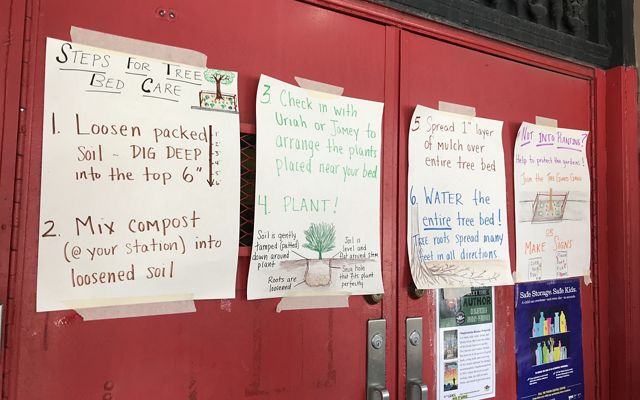 STEPS FOR TREE
BED CARE
1. Loosen packed
Soil - DIG DEEP
into the top 6"
2. MIX COMPOST
(@ your station) into
loosened soil
3. Check in with
Uriah or Jamey to
arrange the plants
placed near your bed
4. PLANT!
Soil is gently
tamped (patted)
down around
plant
Roots are
loosened
Soil is
level and
flat around stem
Hole
that fits plant
perfectly
5. Spread 1" layer
of mulch over
entire tree bed
6. WATER the
entire tree bed!
TREE roots spread many
feet in all directions
NOT INTO PLANTING?
Help to protect the gardens!
Join the Tree Guard Gang
OR
MAKE SIGNS
THE AUTHOR
Safe Storage. Safe Kids.